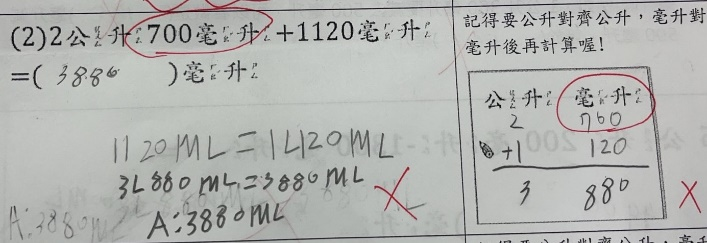 (2)2公升700毫升+1120毫升
=( 3880 )毫升
1120ML=1L120ML
3L880ML=3880ML
A:3880ML
A:3880ML
記得要公升對齊公升,毫升對
毫升後再計算喔!
公升 毫升
2 760
+1 120
3 880